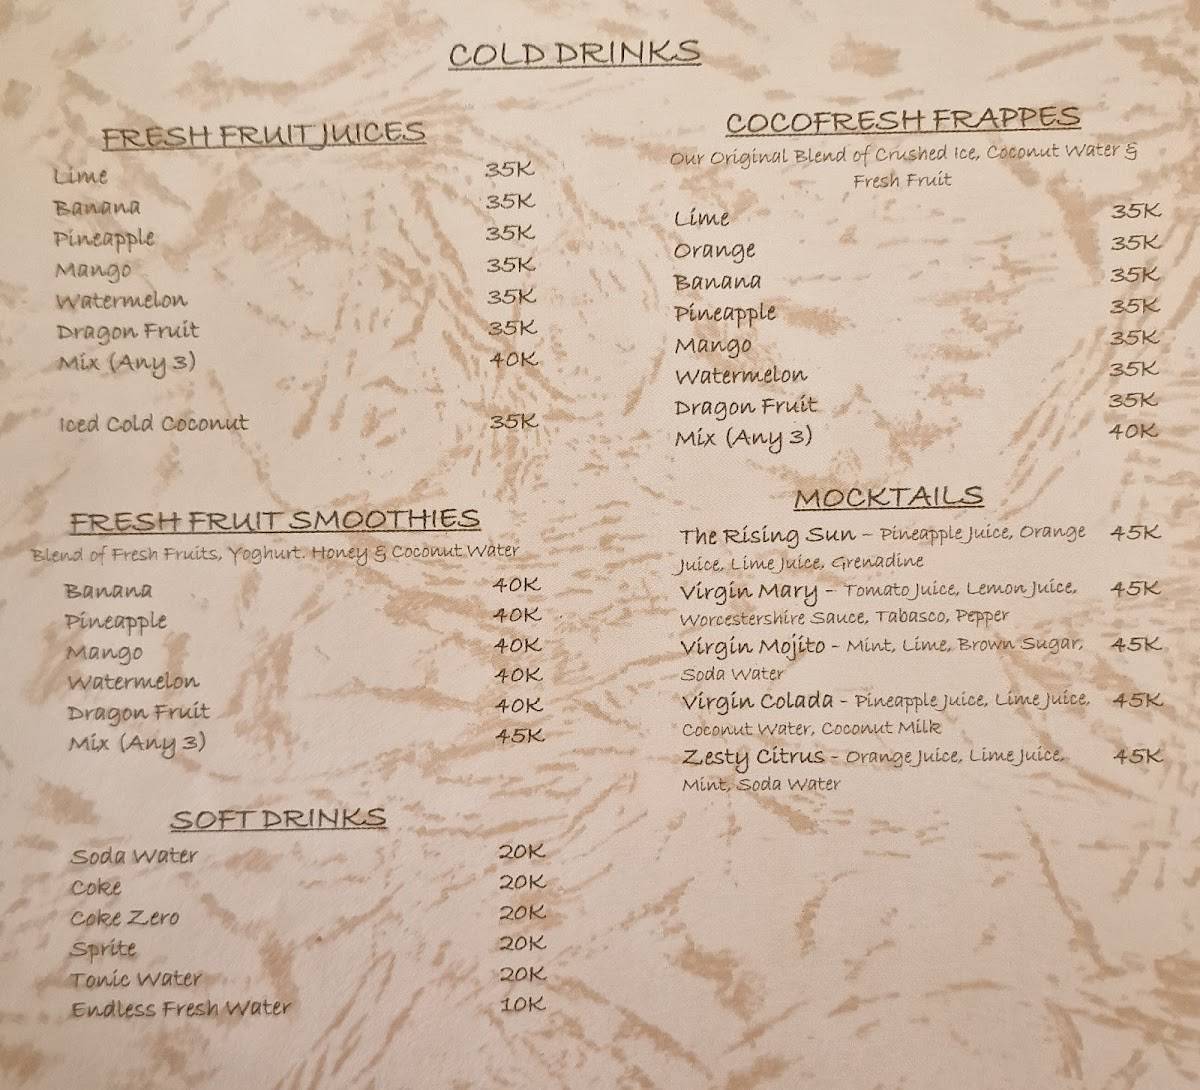 COLD DRINKS
FRESH FRUIT JUICES
Lime 35K
Banana 35K
Pineapple 35K
Mango 35K
Watermelon 35K
Dragon Fruit 35K
Mix (Any 3) 40K
Iced Cold Coconut 35K
FRESH FRUIT SMOOTHIES
Blend of Fresh Fruits, Yoghurt. Honey & Coconut Water
Banana 40K
Pineapple 40K
Mango 40K
Watermelon 40K
Dragon Fruit 40K
Mix (Any 3) 45K
SOFT DRINKS
Soda Water 20K
Coke 20K
Coke Zero 20K
Sprite 20K
Tonic Water 20K
Endless Fresh Water 10K
COCOFRESH FRAPPES
Our Original Blend of Crushed Ice, Coconut Water &
Fresh Fruit
Lime 35K
Orange 35K
Banana 35K
Pineapple 35K
Mango 35K
Watermelon 35K
Dragon Fruit 35K
Mix (Any 3) 40K
MOCKTAILS
The Rising Sun – Pineapple Juice, Orange 45K
Juice, Lime Juice, Grenadine
Virgin Mary – Tomato Juice, Lemon Juice, 45K
Worcestershire Sauce, Tabasco, Pepper
Virgin Mojito - Mint, Lime, Brown Sugar, 45K
Soda Water
Virgin Colada - Pineapple Juice, Lime Juice, 45K
Coconut Water, Coconut Milk
Zesty Citrus - Orange Juice, Lime Juice, 45K
Mint, Soda Water